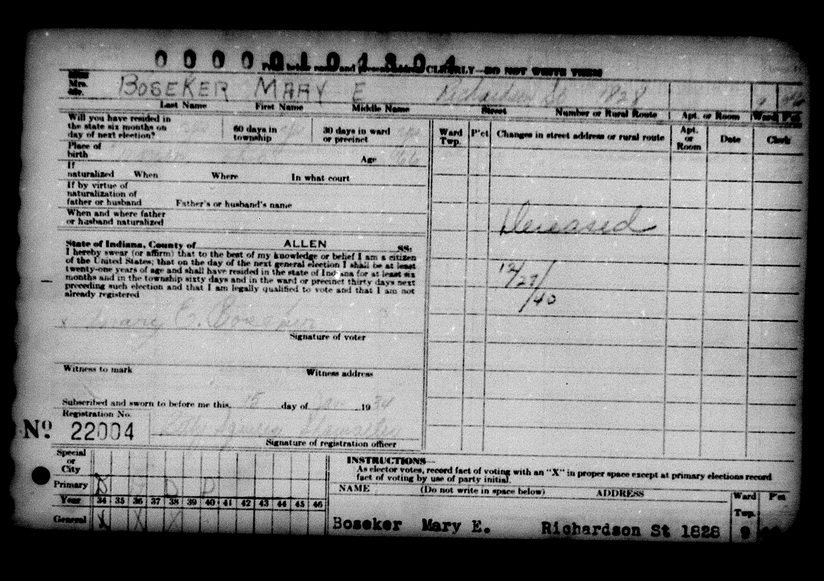 0 0 0 0 0 1 0 1 8 0 4
CLEARLY—DO NOT WRITE THEM
Miss
Mrs.
Mr. BOSEKER MARY E Richardson St. 1828 9
Last Name First Name Middle Name Street Number or Rural Route Apt. or Room Ward P'ct
Will you have resided in
the state six months on
day of next election? yes 60 days in
township yes 30 days in ward
or precinct yes
Place of
birth Age 66
If
naturalized When Where In what court
If by virtue of
naturalization of
father or husband Father's or husband's name
When and where father
or husband naturalized
Ward
Twp. P'ct Changes in street address or rural route Apt.
or
Room Date Clerk
Deceased
12/27/40
State of Indiana, County of ALLEN ss:
I hereby swear (or affirm) that to the best of my knowledge or belief I am a citizen
of the United States; that on the day of the next general election I shall be at least
twenty-one years of age and shall have resided in the state of Indiana for at least six
months and in the township sixty days and in the ward or precinct thirty days next
preceding such election and that I am legally qualified to vote and that I am not
already registered
x Mary E. Boseker
Signature of voter
Witness to mark Witness address
Subscribed and sworn to before me this 15 day of Jan 1934
Registration No.
No 22004
Signature of registration officer
Special
or
City
Primary D D D D
Year 34 35 36 37 38 39 40 41 42 43 44 45 46
General X X X
INSTRUCTIONS—
As elector votes, record fact of voting with an "X" in proper space except at primary elections record
fact of voting by use of party initial.
NAME (Do not write in space below) ADDRESS Ward
Twp. P'ct
Boseker Mary E. Richardson St 1828 9